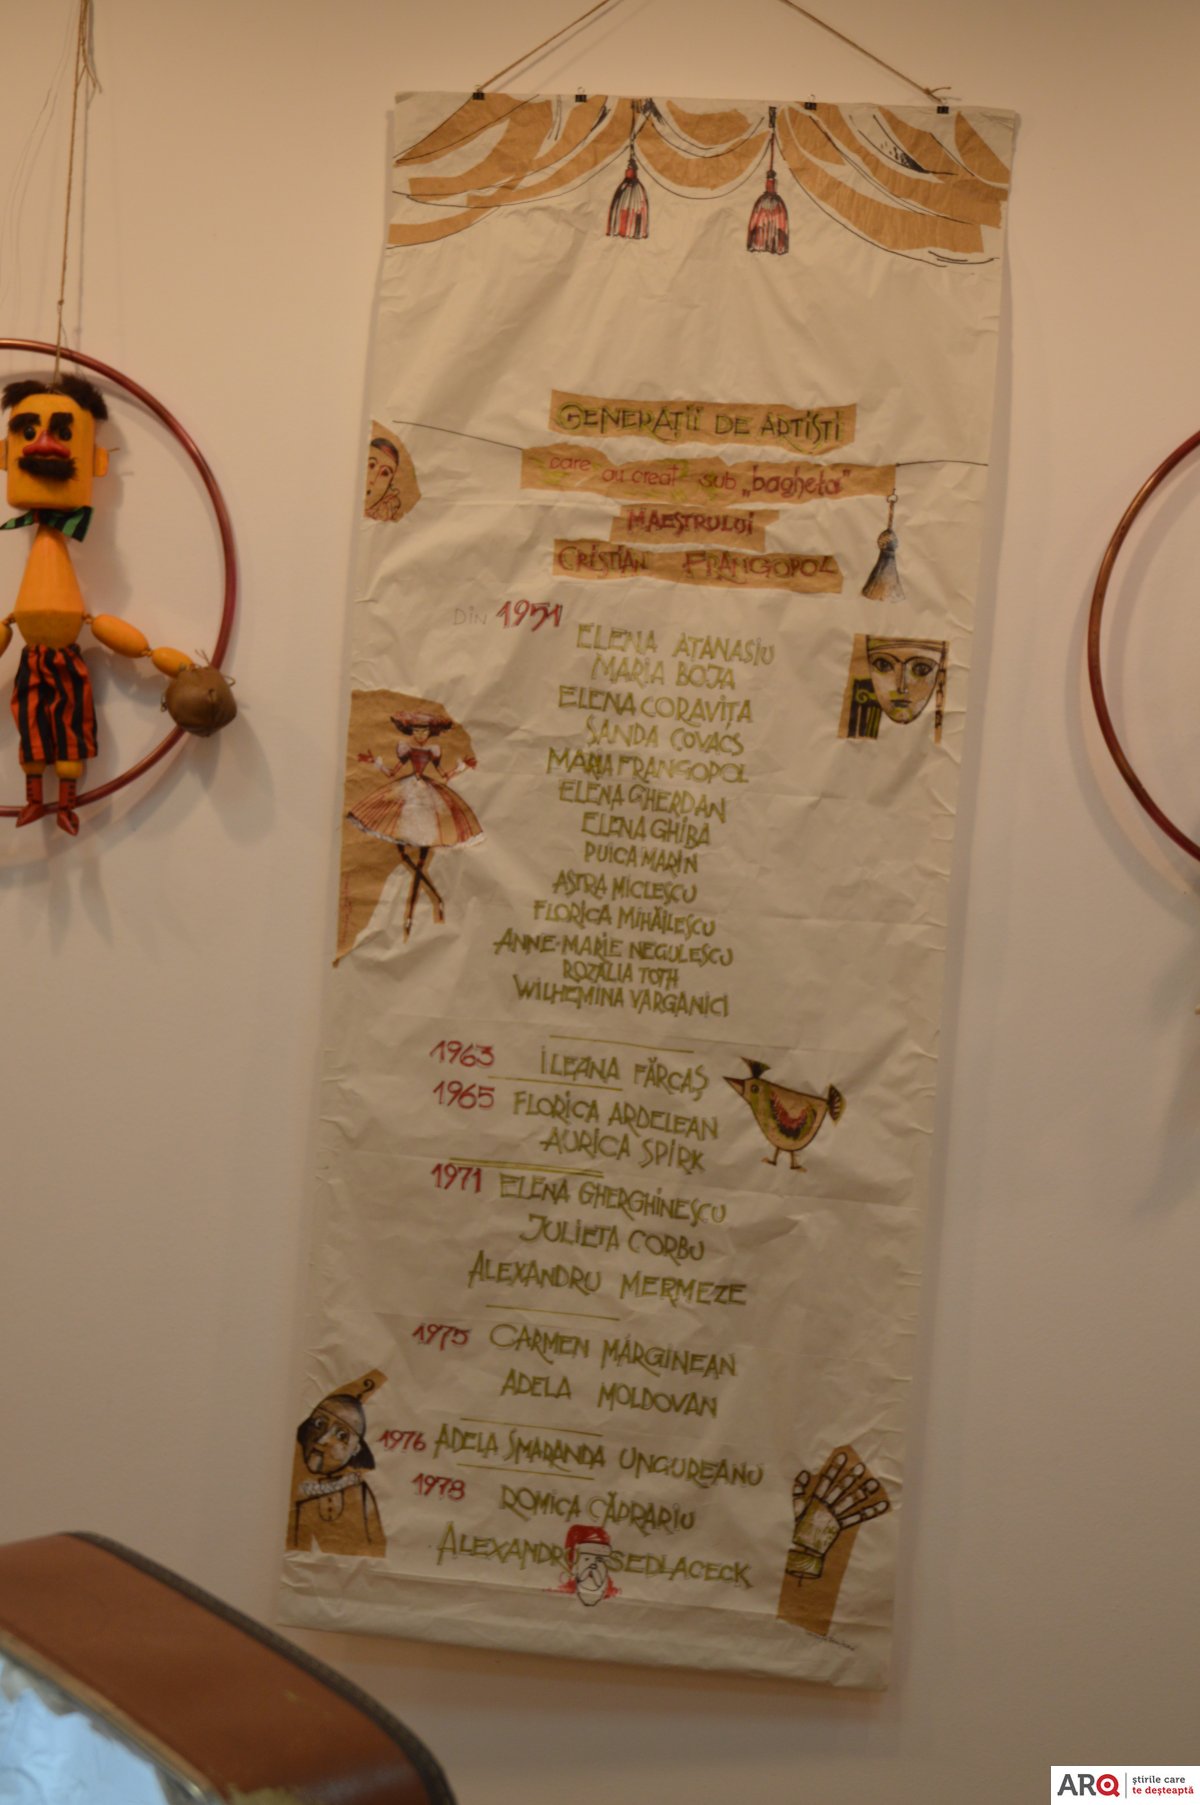 GENERAȚII DE ARTIȘTI
care au creat sub „bagheta"
MAEȘTRULUI
CRISTIAN FRANGOPOL
DIN 1951
ELENA ATANASIU
MARIA BOJA
ELENA CORAVIȚA
SANDA COVACS
MARIA FRANGOPOL
ELENA GHERDAN
ELENA GHIBA
PUICA MARIN
ASTRA MICLESCU
FLORICA MIHĂILESCU
ANNE-MARIE NEGULESCU
ROZALIA TOTH
WILHEMINA VARGANICI
1963 ILEANA FĂRCAȘ
1965 FLORICA ARDELEAN
AURICA SPIRK
1971 ELENA GHERGHINESCU
JULIETA CORBU
ALEXANDRU MERMEZE
1975 CARMEN MĂRGINEAN
ADELA MOLDOVAN
1976 ADELA SMARANDA UNGUREANU
1978 ROMICA CĂPRARIU
ALEXANDRU SEDLACECK
ARQ știrile care te deșteaptă